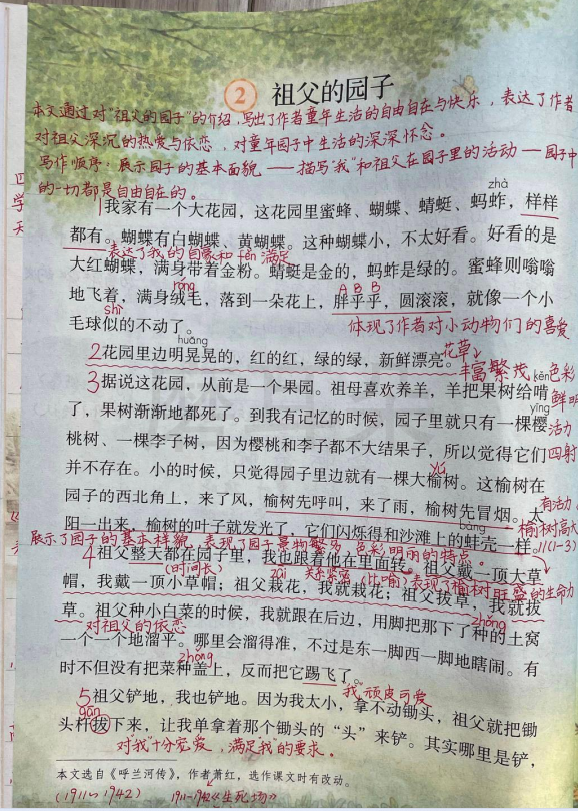 2 祖父的园子
本文通过对“祖父的园子”的介绍，写出了作者童年生活的自由自在与快乐，表达了作者
对祖父深沉的热爱与依恋，对童年园子中生活的深深怀念。
写作顺序：展示园子的基本面貌——描写“我”和祖父在园子里的活动——园子中
的一切都是自由自在的。
zhà
1我家有一个大花园，这花园里蜜蜂、蝴蝶、蜻蜓、蚂蚱，样样
都有。蝴蝶有白蝴蝶、黄蝴蝶。这种蝴蝶小，不太好看。好看的是
表达了我的自豪和满足
大红蝴蝶，满身带着金粉。蜻蜓是金的，蚂蚱是绿的。蜜蜂则嗡嗡
róng
A B B
地飞着，满身绒毛，落到一朵花上，胖乎乎，圆滚滚，就像一个小
shì
毛球似的不动了。
体现了作者对小动物们的喜爱
huǎng
2花园里边明晃晃的，红的红，绿的绿，新鲜漂亮。
花草
丰富繁茂
色彩
鲜明
3据说这花园，从前是一个果园。祖母喜欢养羊，羊把果树给啃
kěn
了，果树渐渐地都死了。到我有记忆的时候，园子里就只有一棵樱
yīng
活力
四射
桃树、一棵李子树，因为樱桃和李子都不大结果子，所以觉得它们
并不存在。小的时候，只觉得园子里边就有一棵大榆树。这榆树在
yú
园子的西北角上，来了风，榆树先呼叫，来了雨，榆树先冒烟。太
有活力
阳一出来，榆树的叶子就发光了，它们闪烁得和沙滩上的蚌壳一样。
bàng
榆树高大
(1-3)
展示了园子的基本样貌，表现了园子景物繁多，色彩明丽的特点。
4祖父整天都在园子里，我也跟着他在里面转。祖父戴一顶大草
(时间长)
关系紧密
(比喻)表现了榆树旺盛的生命力
帽，我戴一顶小草帽；祖父栽花，我就栽花；祖父拔草，我就拔
草。祖父种小白菜的时候，我就跟在后边，用脚把那下了种的土窝
对祖父的依恋
zhǒng
一个一个地溜平。哪里会溜得准，不过是东一脚西一脚地瞎闹。有
zhǒng
时不但没有把菜种盖上，反而把它踢飞了。
我顽皮可爱
5祖父铲地，我也铲地。因为我太小，拿不动锄头，祖父就把锄
gǎn
头杆拔下来，让我单拿着那个锄头的“头”来铲。其实哪里是铲，
对我十分宠爱，满足我的要求。
本文选自《呼兰河传》，作者萧红，选作课文时有改动。
(1911～1942)
1911-1942《生死场》